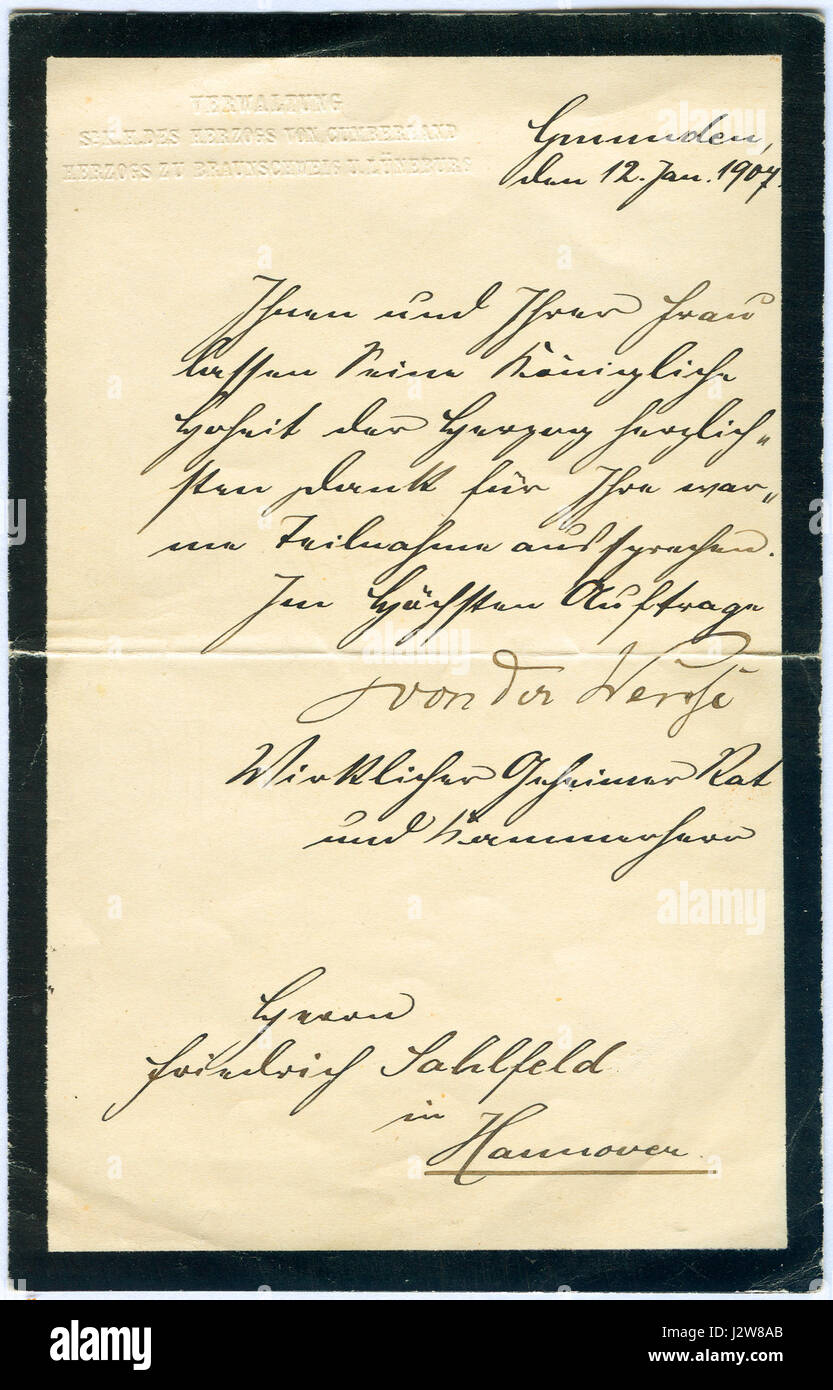 VERWALTUNG
Sr. K. H. DES HERZOGS VON CUMBERLAND
HERZOGS ZU BRAUNSCHWEIG U. LÜNEBURG
Gmunden,
den 12. Jan. 1907.
Ihnen und Ihrer Frau
lassen Seine Königliche
Hoheit der Herzog herzlich„
sten Dank für Ihre war„
me Teilnahme aussprechen.
Im Höchsten Auftrage
von der
Wirklicher Geheimer Rat
und Kammerherr
Herrn
Friedrich Sahlfeld
in
Hannover.
alamy
alamy
Image ID: 2W8AB
www.alamy.com